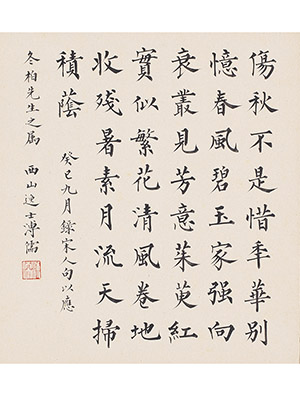 傷秋不是惜秊華別
憶春風碧玉家强向
衰叢見芳意茱萸紅
實似繁花清風卷地
收殘暑素月流天掃
積蔭
癸巳九月錄宋人句以應
冬柏先生之屬 西山逸士溥儒